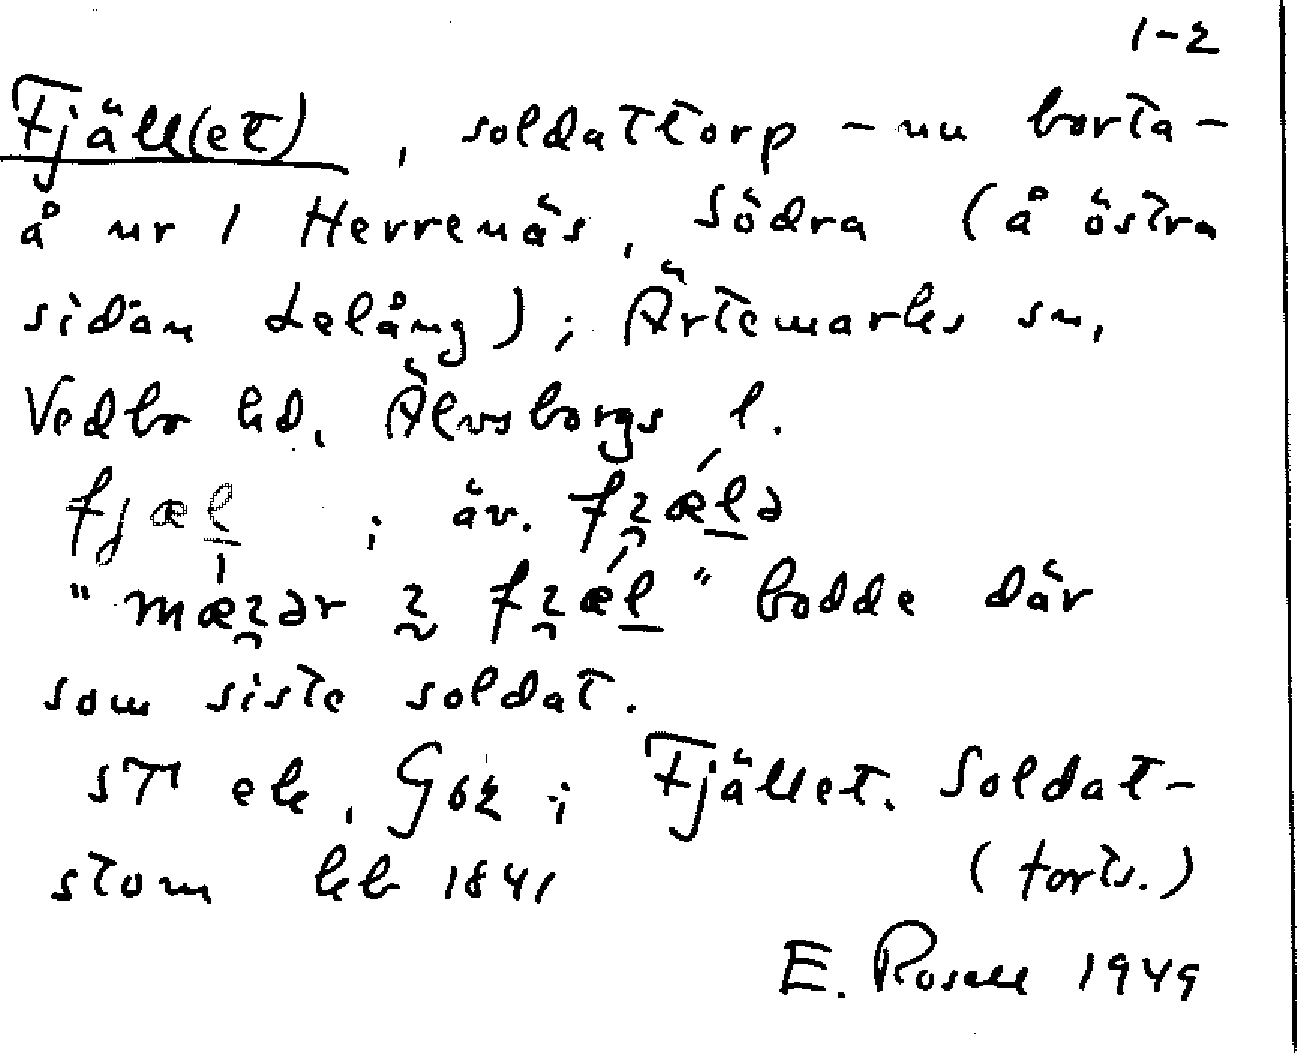 1-2
Fjäll(et), soldattorp - nu borta -
å nr 1 Herrenäs, Södra (å östra
sidan Lelång); Ärtemarks sn,
Vedbo hd, Älvsborgs l.
fjæl ; äv.
" " bodde där
som siste soldat.
ek, ; Fjället. Soldat-
stom hfb 1841 (forts.)
E. Rosell 1949